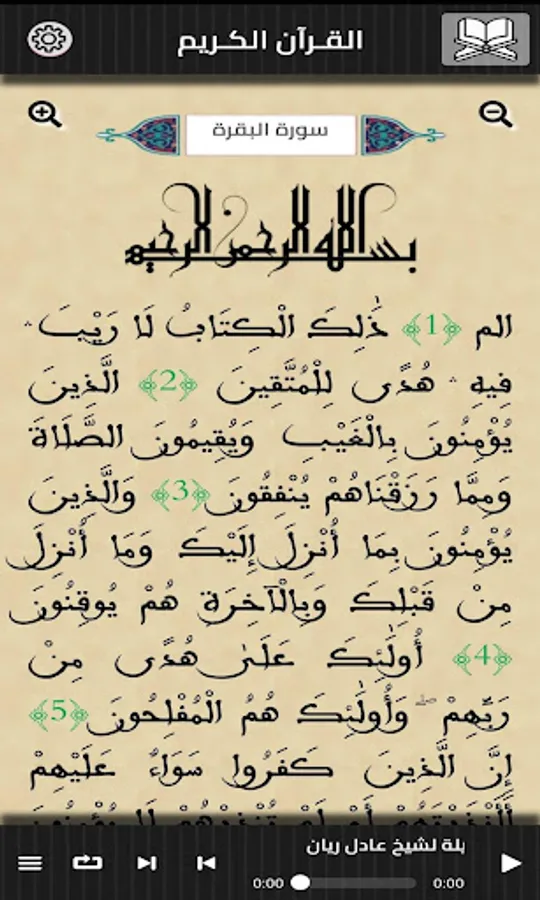 القرآن الكريم
سورة البقرة
بسم الله الرحمن الرحيم
الم ﴿1﴾ ذَٰلِكَ الْكِتَابُ لَا رَيْبَ ۛ
فِيهِ ۛ هُدًى لِلْمُتَّقِينَ ﴿2﴾ الَّذِينَ
يُؤْمِنُونَ بِالْغَيْبِ وَيُقِيمُونَ الصَّلَاةَ
وَمِمَّا رَزَقْنَاهُمْ يُنْفِقُونَ ﴿3﴾ وَالَّذِينَ
يُؤْمِنُونَ بِمَا أُنْزِلَ إِلَيْكَ وَمَا أُنْزِلَ
مِنْ قَبْلِكَ وَبِالْآخِرَةِ هُمْ يُوقِنُونَ
﴿4﴾ أُولَٰئِكَ عَلَىٰ هُدًى مِنْ
رَبِّهِمْ ۖ وَأُولَٰئِكَ هُمُ الْمُفْلِحُونَ ﴿5﴾
إِنَّ الَّذِينَ كَفَرُوا سَوَاءٌ عَلَيْهِمْ
أَأَنْذَرْتَهُمْ أَمْ لَمْ تُنْذِرْهُمْ لَا يُؤْمِنُونَ
بلة لشيخ عادل ريان
0:00 0:00